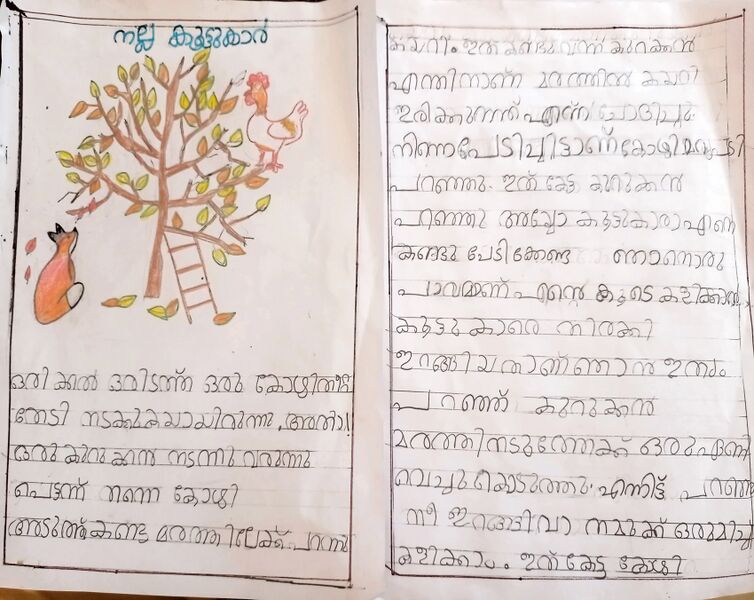 നല്ല കൂട്ടുകാർ
ഒരിക്കൽ ഒരിടത്ത് ഒരു കോഴി തീറ്റ
തേടി നടക്കുകയായിരുന്നു. അതാ!
ഒരു കുറുക്കൻ നടന്നു വരുന്നു
പെട്ടന്ന് തന്നെ കോഴി
അടുത്ത് കണ്ട മരത്തിലേക്ക് പറന്നു
കയറി. ഇത് കണ്ടു വന്ന കുറുക്കൻ
എന്തിനാണ് മരത്തിൽ കയറി
ഇരിക്കുന്നത് എന്ന് ചോദിച്ചു.
നിന്നെ പേടിച്ചിട്ടാണ് കോഴി മറുപടി
പറഞ്ഞു. ഇത് കേട്ട കുറുക്കൻ
പറഞ്ഞു അയ്യോ കൂട്ടുകാരാ എന്നെ
കണ്ടു പേടിക്കേണ്ട ഞാനൊരു
പാവമാണ് എന്റെ കൂടെ കളിക്കാൻ
കൂട്ടുകാരെ തിരക്കി
ഇറങ്ങിയതാണ് ഞാൻ ഇതും
പറഞ്ഞ് കുറുക്കൻ
മരത്തിനടുത്തേക്ക് ഒരു ഏണി
വെച്ചു കൊടുത്തു. എന്നിട്ട് പറഞ്ഞു
നീ ഇറങ്ങി വാ നമുക്ക് ഒരുമിച്ചു
കളിക്കാം. ഇത് കേട്ട കോഴി